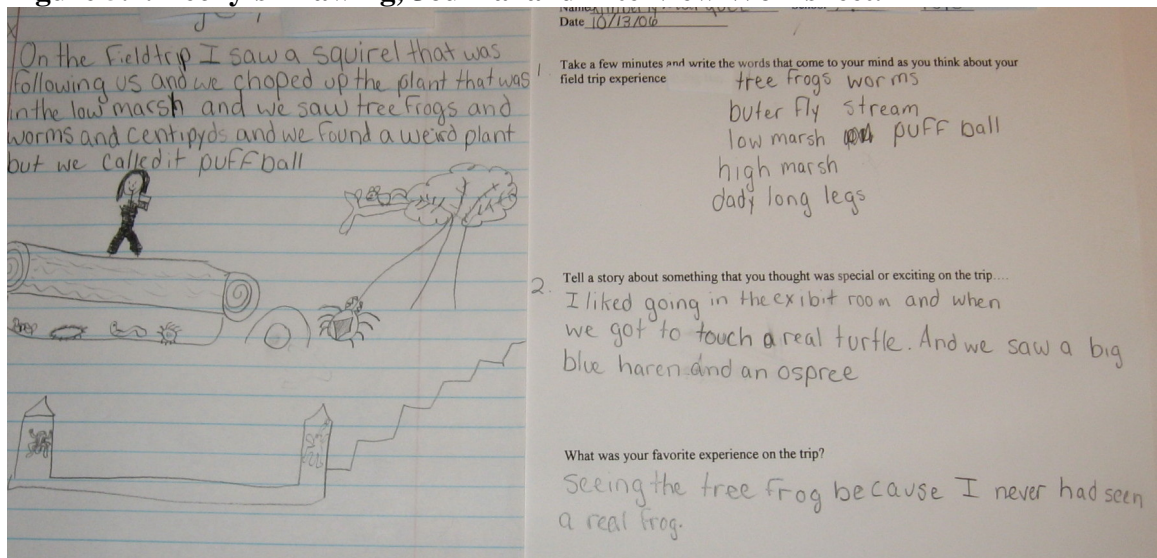 On the Fieldtrip I saw a squirel that was
following us and we choped up the plant that was
in the low marsh and we saw tree frogs and
worms and centipyds and we found a weird plant
but we called it puff ball
Date 10/13/06
1.
Take a few minutes and write the words that come to your mind as you think about your
field trip experience
tree frogs worms
buter fly stream
low marsh puff ball
high marsh
dady long legs
2.
Tell a story about something that you thought was special or exciting on the trip....
I liked going in the exibit room and when
we got to touch a real turtle. And we saw a big
blue haren and an ospree
What was your favorite experience on the trip?
Seeing the tree frog because I never had seen
a real frog.